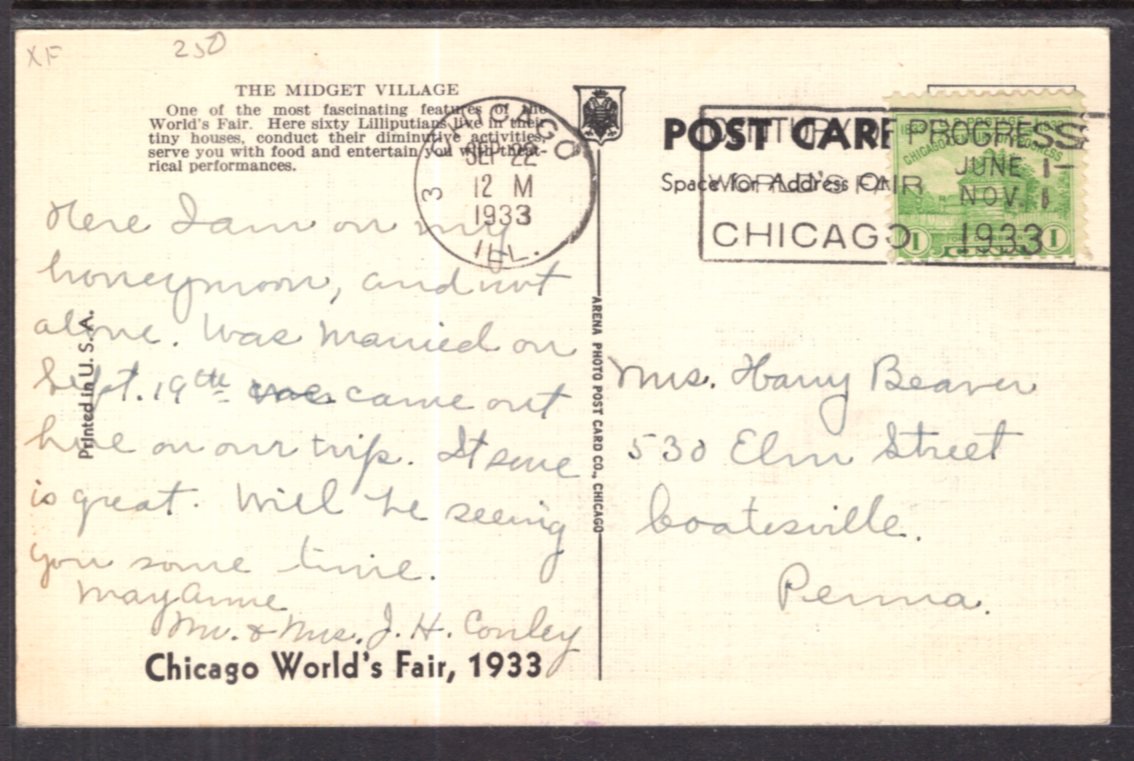 XF
250
THE MIDGET VILLAGE
One of the most fascinating features of the
World's Fair. Here sixty Lilliputians live in their
tiny houses, conduct their diminutive activities,
serve you with food and entertain you with theat-
rical performances.
CHICAGO
3
SEP 22
12 M
1933
ILL.
Here I am on my
honeymoon, and not
alone. Was married on
Sept. 19th came out
here on our trip. It sure
is great. Will be seeing
you some time.
MayAnne
Mr. & Mrs. J. H. Conley
Chicago World's Fair, 1933
Printed in U. S. A.
ARENA PHOTO POST CARD CO., CHICAGO
POST CARD
Space for Address Only
A CENTURY OF PROGRESS
WORLD'S FAIR
JUNE 1-
NOV. 1
CHICAGO 1933
CHICAGO
PROGRESS
1 1
Mrs. Harry Beaver
530 Elm Street
Coatesville.
Penna.